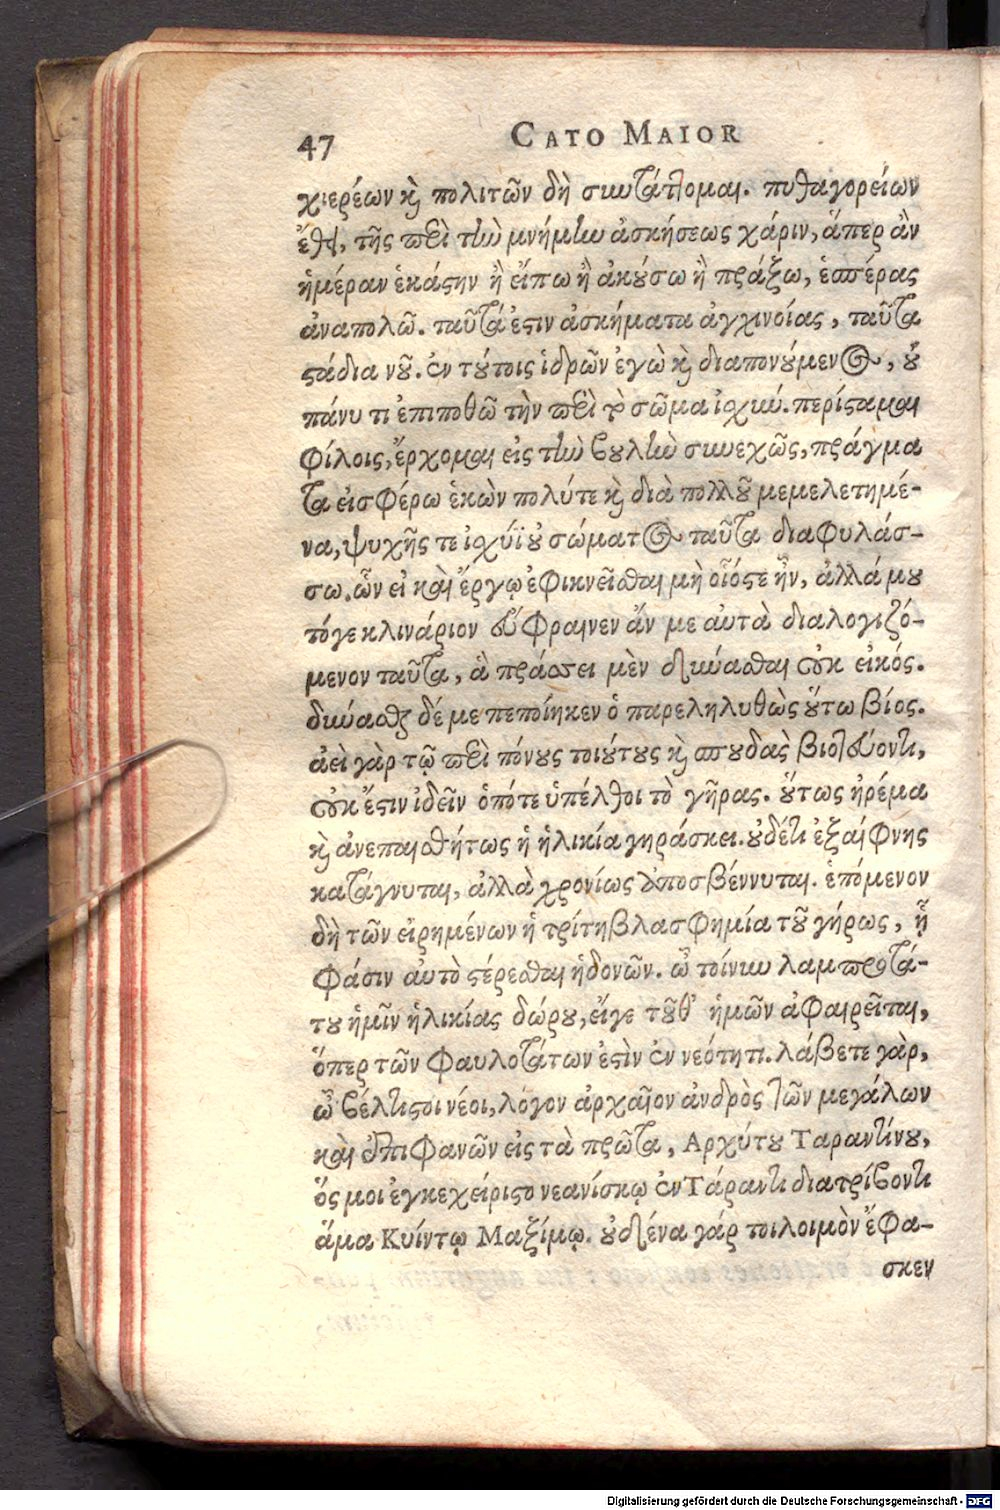 47 CATO MAIOR
χιερέων καὶ πολιτῶν δὴ συντάττομαι. πυθαγορείων
ἔθει, τῆς περὶ τὴν μνήμην ἀσκήσεως χάριν, ἅπερ ἂν
ἡμέραν ἑκάστην ἢ εἴπω ἢ ἀκούσω ἢ πράξω, ἑσπέρας
ἀναπολῶ. ταῦτά ἐστιν ἀσκήματα ἀγχινοίας, ταῦτα
στάδια νοῦ. ἐν τούτοις ἱδρῶν ἐγὼ καὶ διαπονούμενος, οὐ
πάνυ τι ἐπιποθῶ τὴν περὶ τὸ σῶμα ἰσχύν. περίσταμαι
φίλοις, ἔρχομαι εἰς τὴν βουλὴν συνεχῶς, πράγμα
τα εἰσφέρω ἑκὼν πολύτε καὶ διὰ πολλοῦ μεμελετημέ-
να, ψυχῆς τε ἰσχύϊ οὐ σώματος ταῦτα διαφυλάσ-
σω. ὧν εἰ καὶ ἔργῳ ἐφικνεῖσθαι μὴ οἷόςτε ἦν, ἀλλά μου
τόγε κλινάριον εὔφραινεν ἄν με αὐτὰ διαλογιζό-
μενον ταῦτα, ἃ πράσσει μὲν δύνασθαι οὐκ εἰκός.
δύνασθαι δέ με πεποίηκεν ὁ παρεληλυθὼς οὕτω βίος.
ἀεὶ γὰρ τῷ περὶ πόνους τοιούτους καὶ σπουδὰς βιοτεύοντι,
οὐκ ἔστιν ἰδεῖν ὁπότε ὑπέλθοι τὸ γῆρας. οὕτως ἠρέμα
καὶ ἀνεπαισθήτως ἡ ἡλικία γηράσκει. οὐδέτι ἐξαίφνης
κατάγνυται, ἀλλὰ χρονίως ἀποσβέννυται. ἑπόμενον
δὴ τῶν εἰρημένων ἡ τρίτη βλασφημία τοῦ γήρως, ᾗ
φάσιν αὐτὸ στέρεσθαι ἡδονῶν. ὢ τοίνυν λαμπροτά-
του ἡμῖν ἡλικίας δώρου, εἴγε τοῦθ' ἡμῶν ἀφαιρεῖται,
ὅπερ τῶν φαυλοτάτων ἐστὶν ἐν νεότητι. λάβετε γὰρ,
ὦ βέλτιστοι νέοι, λόγον ἀρχαῖον ἀνδρὸς τῶν μεγάλων
καὶ ἐπιφανῶν εἰς τὰ πρῶτα, Αρχύτου Ταραντίνου,
ὅς μοι ἐγκεχείριστο νεανίσκῳ ἐν Τάραντι διατρίβοντι
ἅμα Κυίντῳ Μαξίμῳ. οὐδένα γάρ τοι λοιμὸν ἔφα-
σκεν
Digitalisierung gefördert durch die Deutsche Forschungsgemeinschaft - DFG